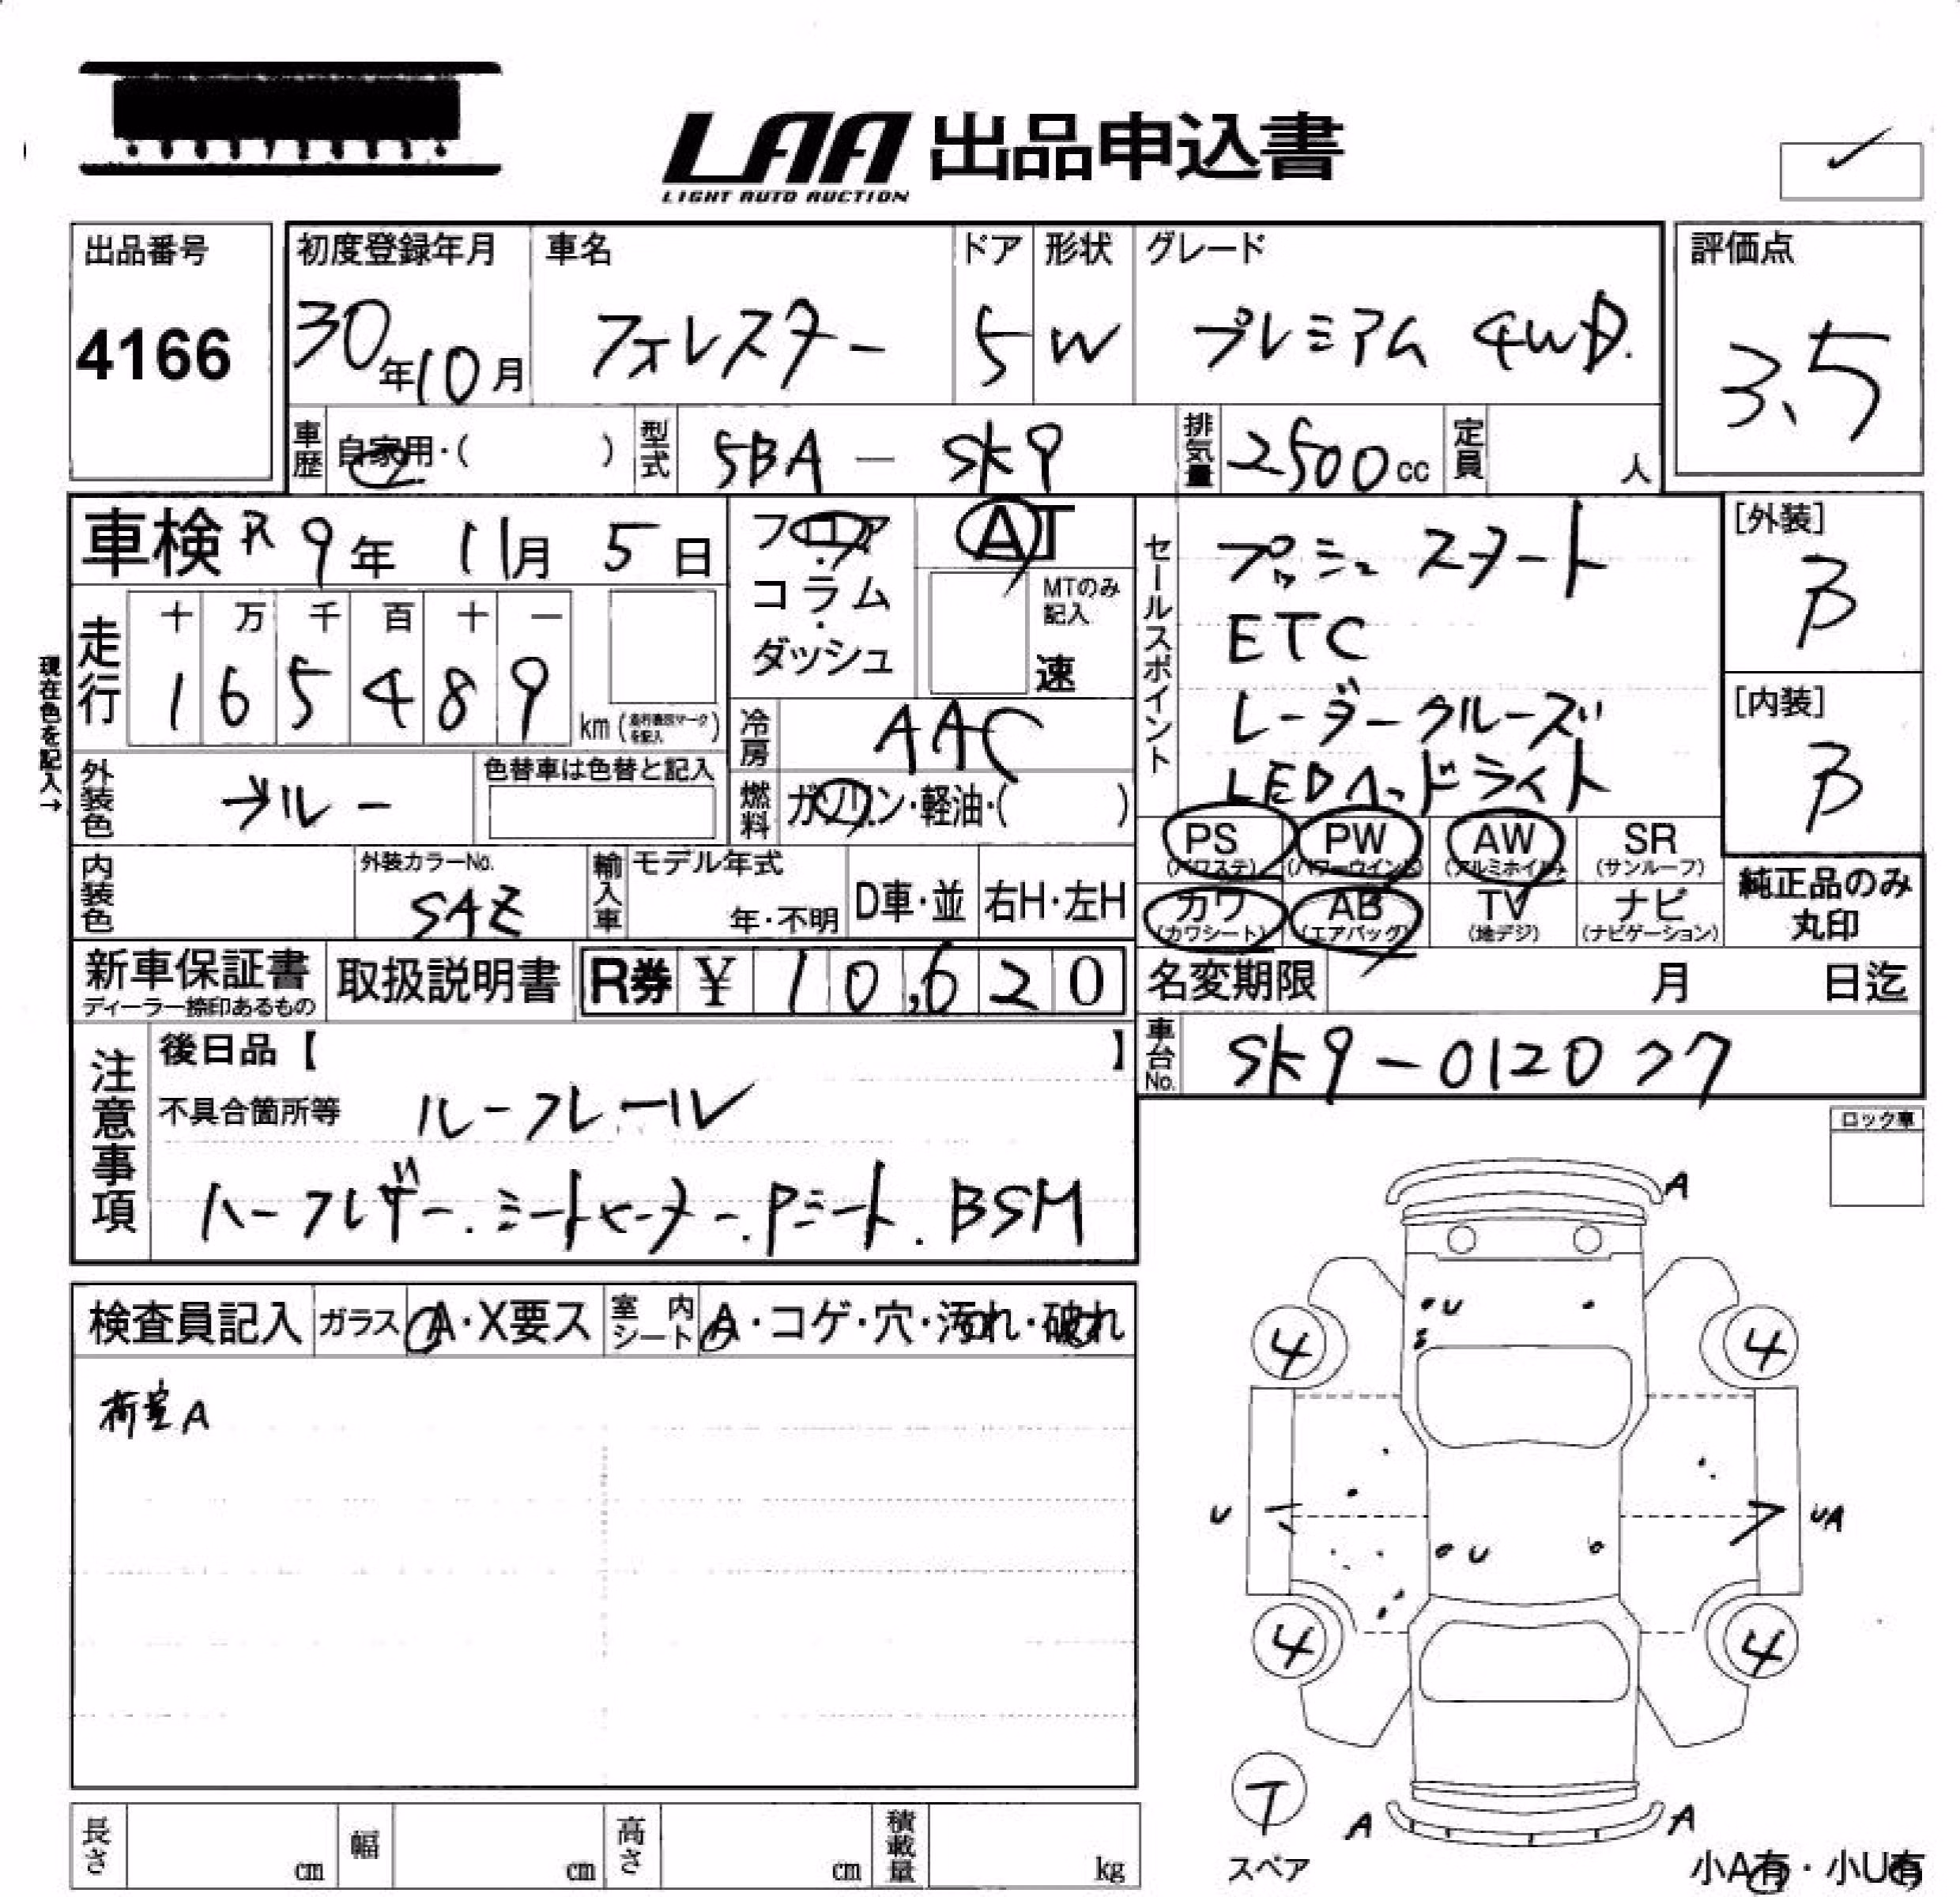 LAA 出品申込書
LIGHT AUTO AUCTION
出品番号
4166
初度登録年月
30年10月
車名
フォレスター
ドア
5
形状
W
グレード
プレミアム 4WD.
評価点
3.5
車歴
自家用・( )
型式
5BA - SK9
排気量
2500cc
定員
人
車検 R9年 11月 5日
フロア・コラム・ダッシュ
AT
MTのみ記入
速
現在色を記入→
走行
十 万 千 百 十 一
1 6 5 4 8 9
km (走行表示マークを記入)
冷房
AAC
外装色
ブルー
色替車は色替と記入
燃料
ガソリン・軽油・( )
セールスポイント
プッシュスタート
ETC
レーダークルーズ
LEDヘッドライト
[外装]
B
[内装]
B
PS (パワステ)
PW (パワーウインド)
AW (アルミホイル)
SR (サンルーフ)
カワ (カワシート)
AB (エアバッグ)
TV (地デジ)
ナビ (ナビゲーション)
純正品のみ
丸印
内装色
外装カラーNo.
SAZ
輸入車
モデル年式
年・不明
D車・並
右H・左H
新車保証書
ディーラー捺印あるもの
取扱説明書
R券 ¥ 10,620
名変期限 月 日迄
車台No.
SK9-012037
注意事項
後日品【 】
不具合箇所等 ルーフレール
ハーフレザー.シートヒーター.Pシート.BSM
ロック車
検査員記入
ガラス A・X要ス
室内シート A・コゲ・穴・汚れ・破れ
荷室A
A
U
4
4
U
UA
U
4
4
T
スペア
A
A
長さ cm
幅 cm
高さ cm
積載量 kg
小A有・小U有